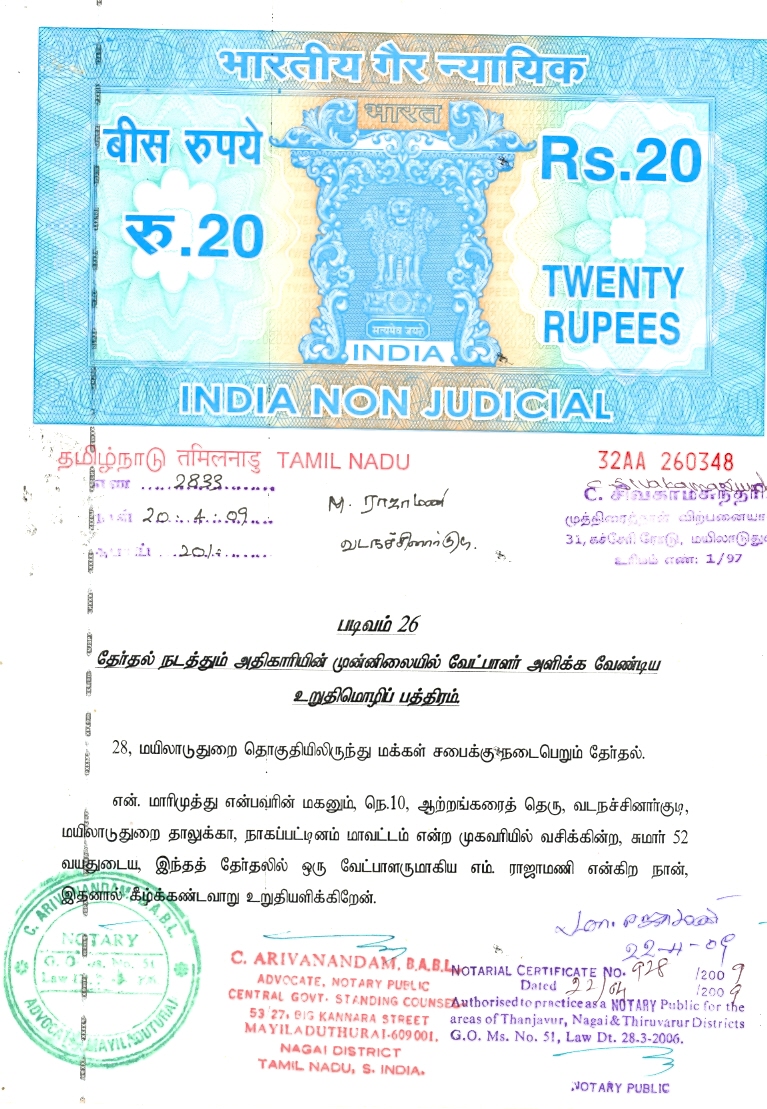 भारतीय गैर न्यायिक
भारत
बीस रुपये
रु.20
Rs.20
TWENTY
RUPEES
सत्यमेव जयते
INDIA
INDIA NON JUDICIAL
தமிழ்நாடு तमिलनाडु TAMIL NADU
32AA 260348
2833
20.4.09
20/-
M. ராஜாமணி
வடநச்சினார்குடி.
C. சிவகாமசுந்தரி
முத்திரைத்தாள் விற்பனையா
31, கச்சேரி ரோடு, மயிலாடுது
உரிமம் எண்: 1/97
படிவம் 26
தேர்தல் நடத்தும் அதிகாரியின் முன்னிலையில் வேட்பாளர் அளிக்க வேண்டிய
உறுதிமொழிப் பத்திரம்.
28, மயிலாடுதுறை தொகுதியிலிருந்து மக்கள் சபைக்கு நடைபெறும் தேர்தல்.
என். மாரிமுத்து என்பவரின் மகனும், நெ.10, ஆற்றங்கரைத் தெரு, வடநச்சினார்குடி,
மயிலாடுதுறை தாலுக்கா, நாகப்பட்டினம் மாவட்டம் என்ற முகவரியில் வசிக்கின்ற, சுமார் 52
வயதுடைய, இந்தத் தேர்தலில் ஒரு வேட்பாளருமாகிய எம். ராஜாமணி என்கிற நான்,
இதனால் கீழ்க்கண்டவாறு உறுதியளிக்கிறேன்.
C. ARIVANANDAM, B.A.B.L.
NOTARY
G.O. Ms. No. 51
ADVOCATE, MAYILADUTURAI
C. ARIVANANDAM, B.A.B.L.
ADVOCATE, NOTARY PUBLIC
CENTRAL GOVT. STANDING COUNSEL
53/27, BIG KANNARA STREET
MAYILADUTHURAI-609 001.
NAGAI DISTRICT
TAMIL NADU, S. INDIA.
22-4-09
NOTARIAL CERTIFICATE NO. 928 /2009
Dated 22/04 /2009
Authorised to practice as a NOTARY Public for the
areas of Thanjavur, Nagai & Thiruvarur Districts
G.O. Ms. No. 51, Law Dt. 28-3-2006.
NOTARY PUBLIC